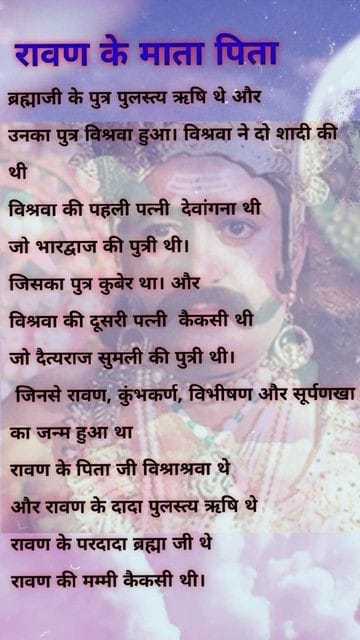 रावण के माता पिता
ब्रह्माजी के पुत्र पुलस्त्य ऋषि थे और
उनका पुत्र विश्रवा हुआ। विश्रवा ने दो शादी की
थी
विश्रवा की पहली पत्नी देवांगना थी
जो भारद्वाज की पुत्री थी।
जिसका पुत्र कुबेर था। और
विश्रवा की दूसरी पत्नी कैकसी थी
जो दैत्यराज सुमली की पुत्री थी।
जिनसे रावण, कुंभकर्ण, विभीषण और सूर्पणखा
का जन्म हुआ था
रावण के पिता जी विश्राश्रवा थे
और रावण के दादा पुलस्त्य ऋषि थे
रावण के परदादा ब्रह्मा जी थे
रावण की मम्मी कैकसी थी।